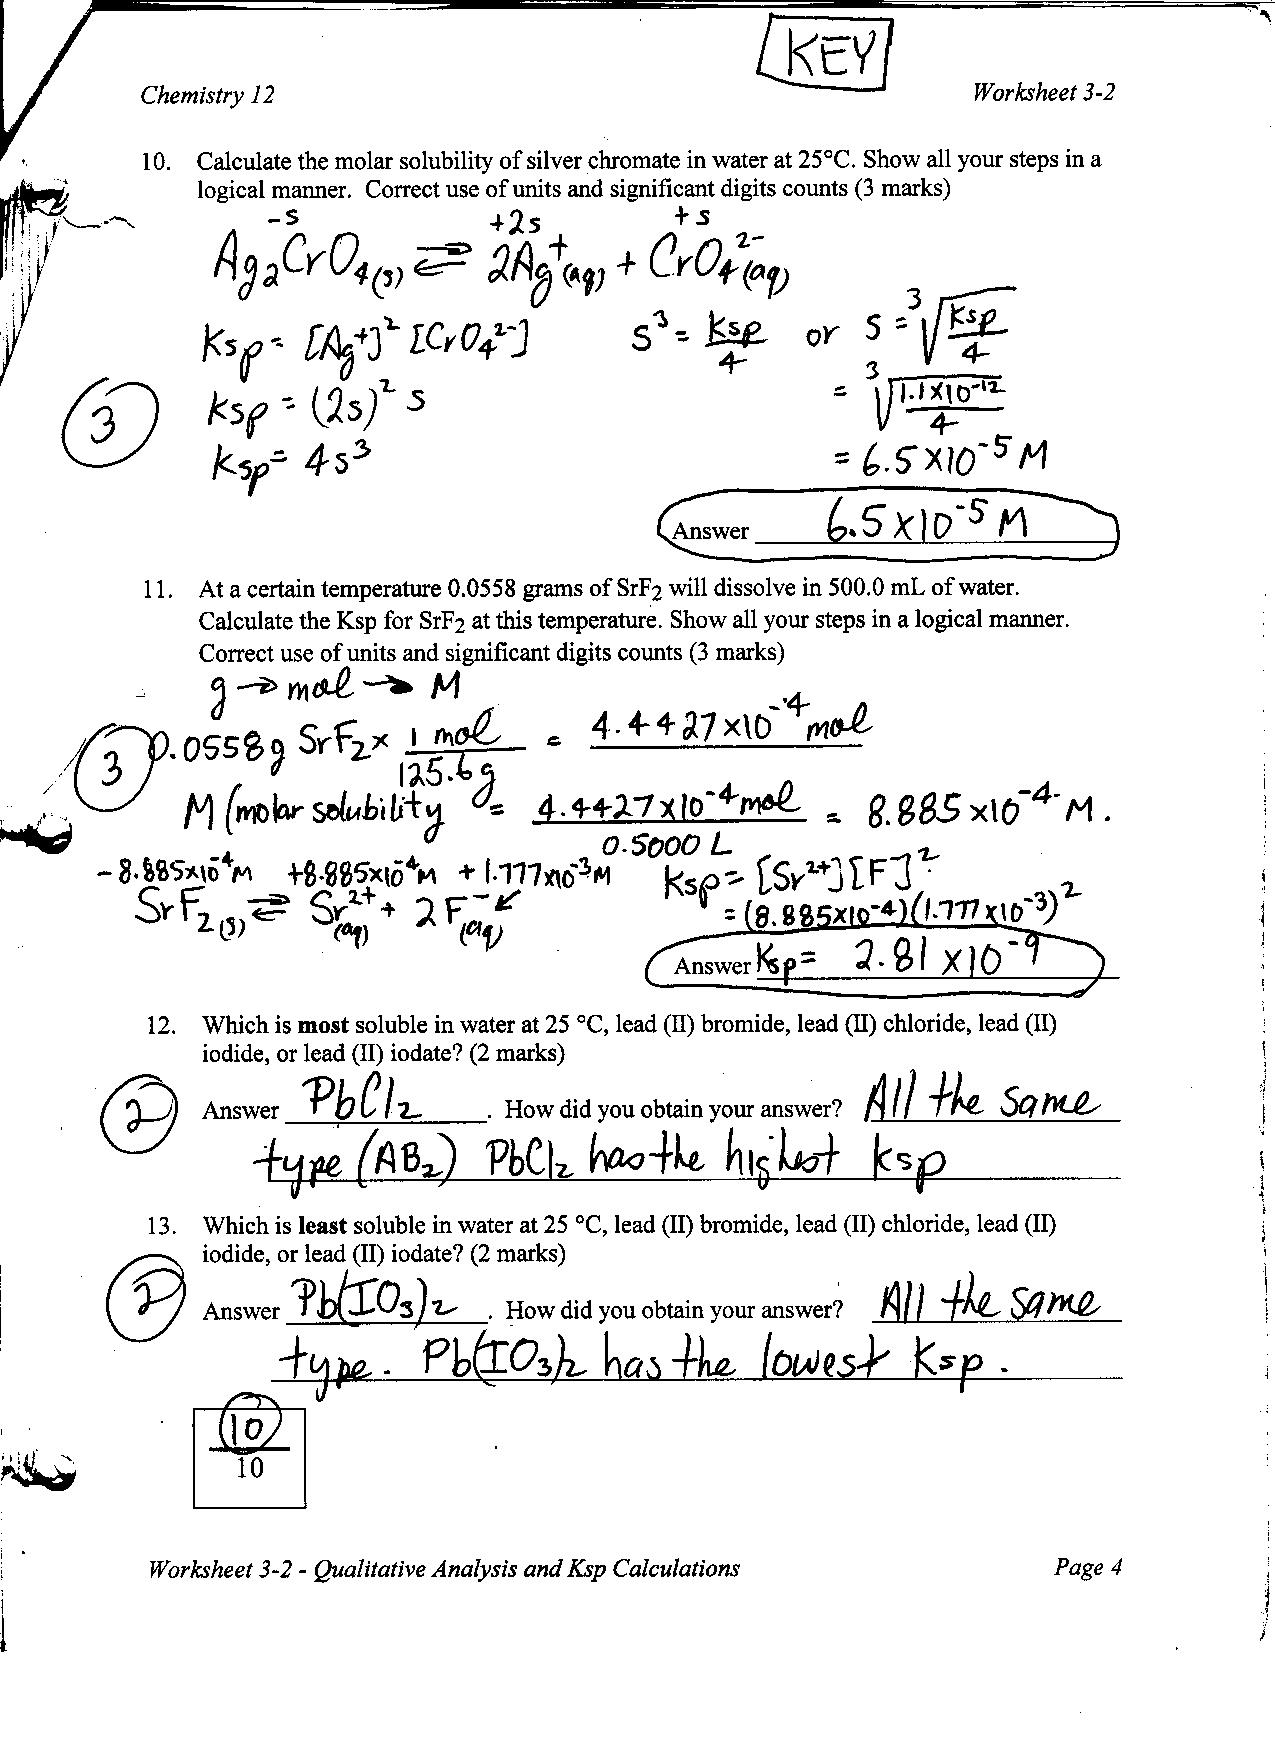 KEY
Chemistry 12 Worksheet 3-2
10. Calculate the molar solubility of silver chromate in water at 25°C. Show all your steps in a
logical manner. Correct use of units and significant digits counts (3 marks)
-s +2s +s
Ag₂CrO₄(s) ⇌ 2Ag⁺(aq) + CrO₄²⁻(aq)
Ksp = [Ag⁺]² [CrO₄²⁻] s³ = Ksp/4 or s = ³√(Ksp/4)
3 Ksp = (2s)² s = ³√(1.1×10⁻¹²/4)
Ksp = 4s³ = 6.5×10⁻⁵ M
Answer 6.5×10⁻⁵ M
11. At a certain temperature 0.0558 grams of SrF₂ will dissolve in 500.0 mL of water.
Calculate the Ksp for SrF₂ at this temperature. Show all your steps in a logical manner.
Correct use of units and significant digits counts (3 marks)
g → mol → M
3 0.0558g SrF₂ × 1 mol/125.6g = 4.4427×10⁻⁴ mol
M (molar solubility = 4.4427×10⁻⁴ mol/0.5000 L = 8.885×10⁻⁴ M.
-8.885×10⁻⁴M +8.885×10⁻⁴M +1.777×10⁻³M Ksp = [Sr²⁺][F⁻]²
SrF₂(s) ⇌ Sr²⁺(aq) + 2F⁻(aq) = (8.885×10⁻⁴)(1.777×10⁻³)²
Answer Ksp = 2.81×10⁻⁹
12. Which is most soluble in water at 25 °C, lead (II) bromide, lead (II) chloride, lead (II)
iodide, or lead (II) iodate? (2 marks)
2 Answer PbCl₂. How did you obtain your answer? All the same
type (AB₂) PbCl₂ has the highest Ksp
13. Which is least soluble in water at 25 °C, lead (II) bromide, lead (II) chloride, lead (II)
iodide, or lead (II) iodate? (2 marks)
2 Answer Pb(IO₃)₂. How did you obtain your answer? All the same
type. Pb(IO₃)₂ has the lowest Ksp.
10
10
Worksheet 3-2 - Qualitative Analysis and Ksp Calculations Page 4